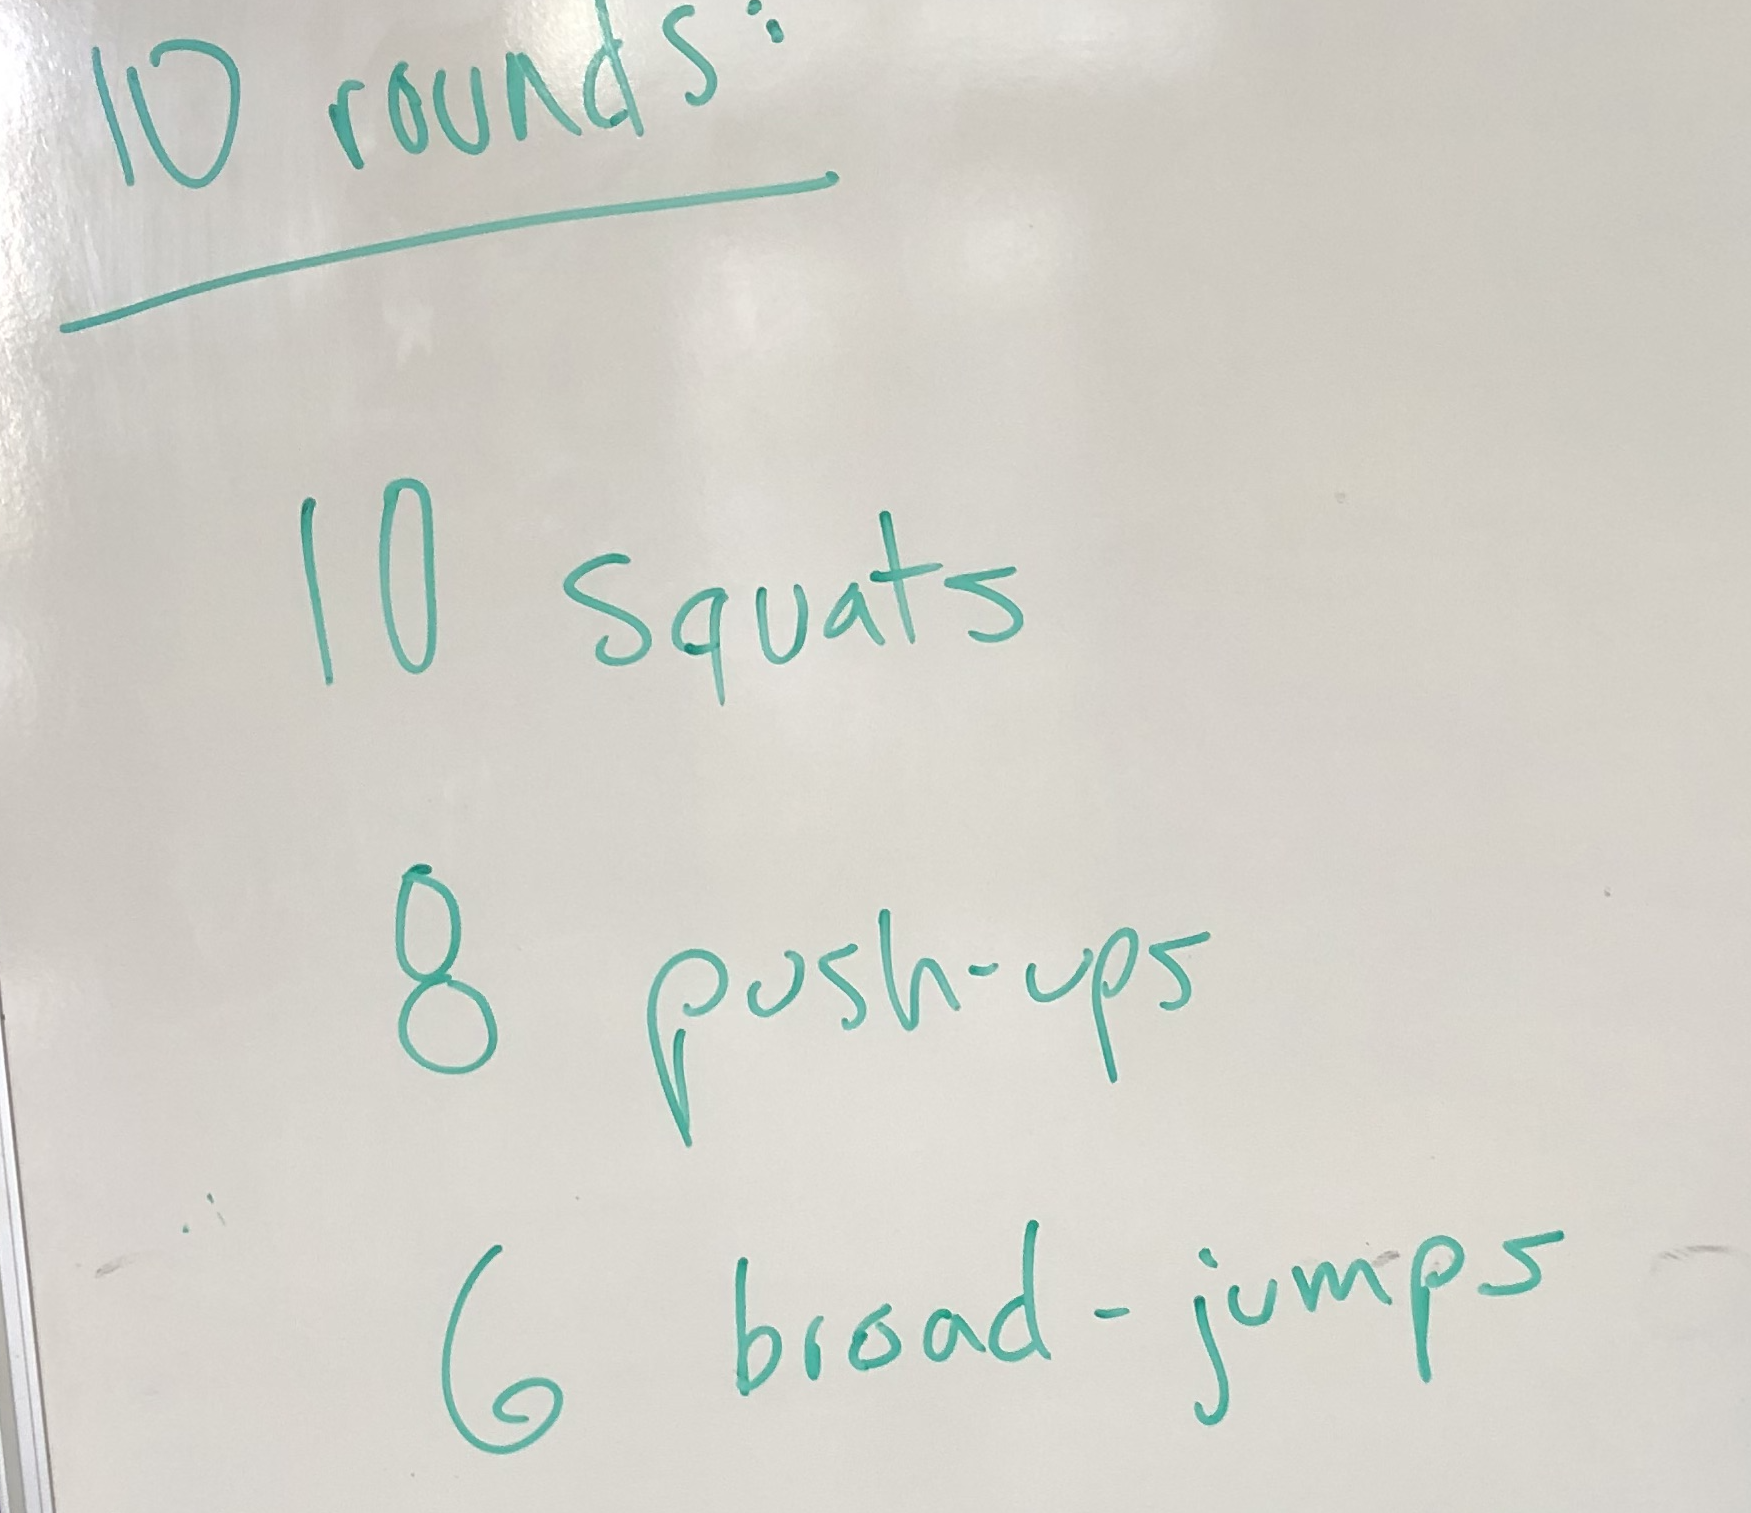 10 rounds:
10 squats
8 push-ups
6 broad-jumps